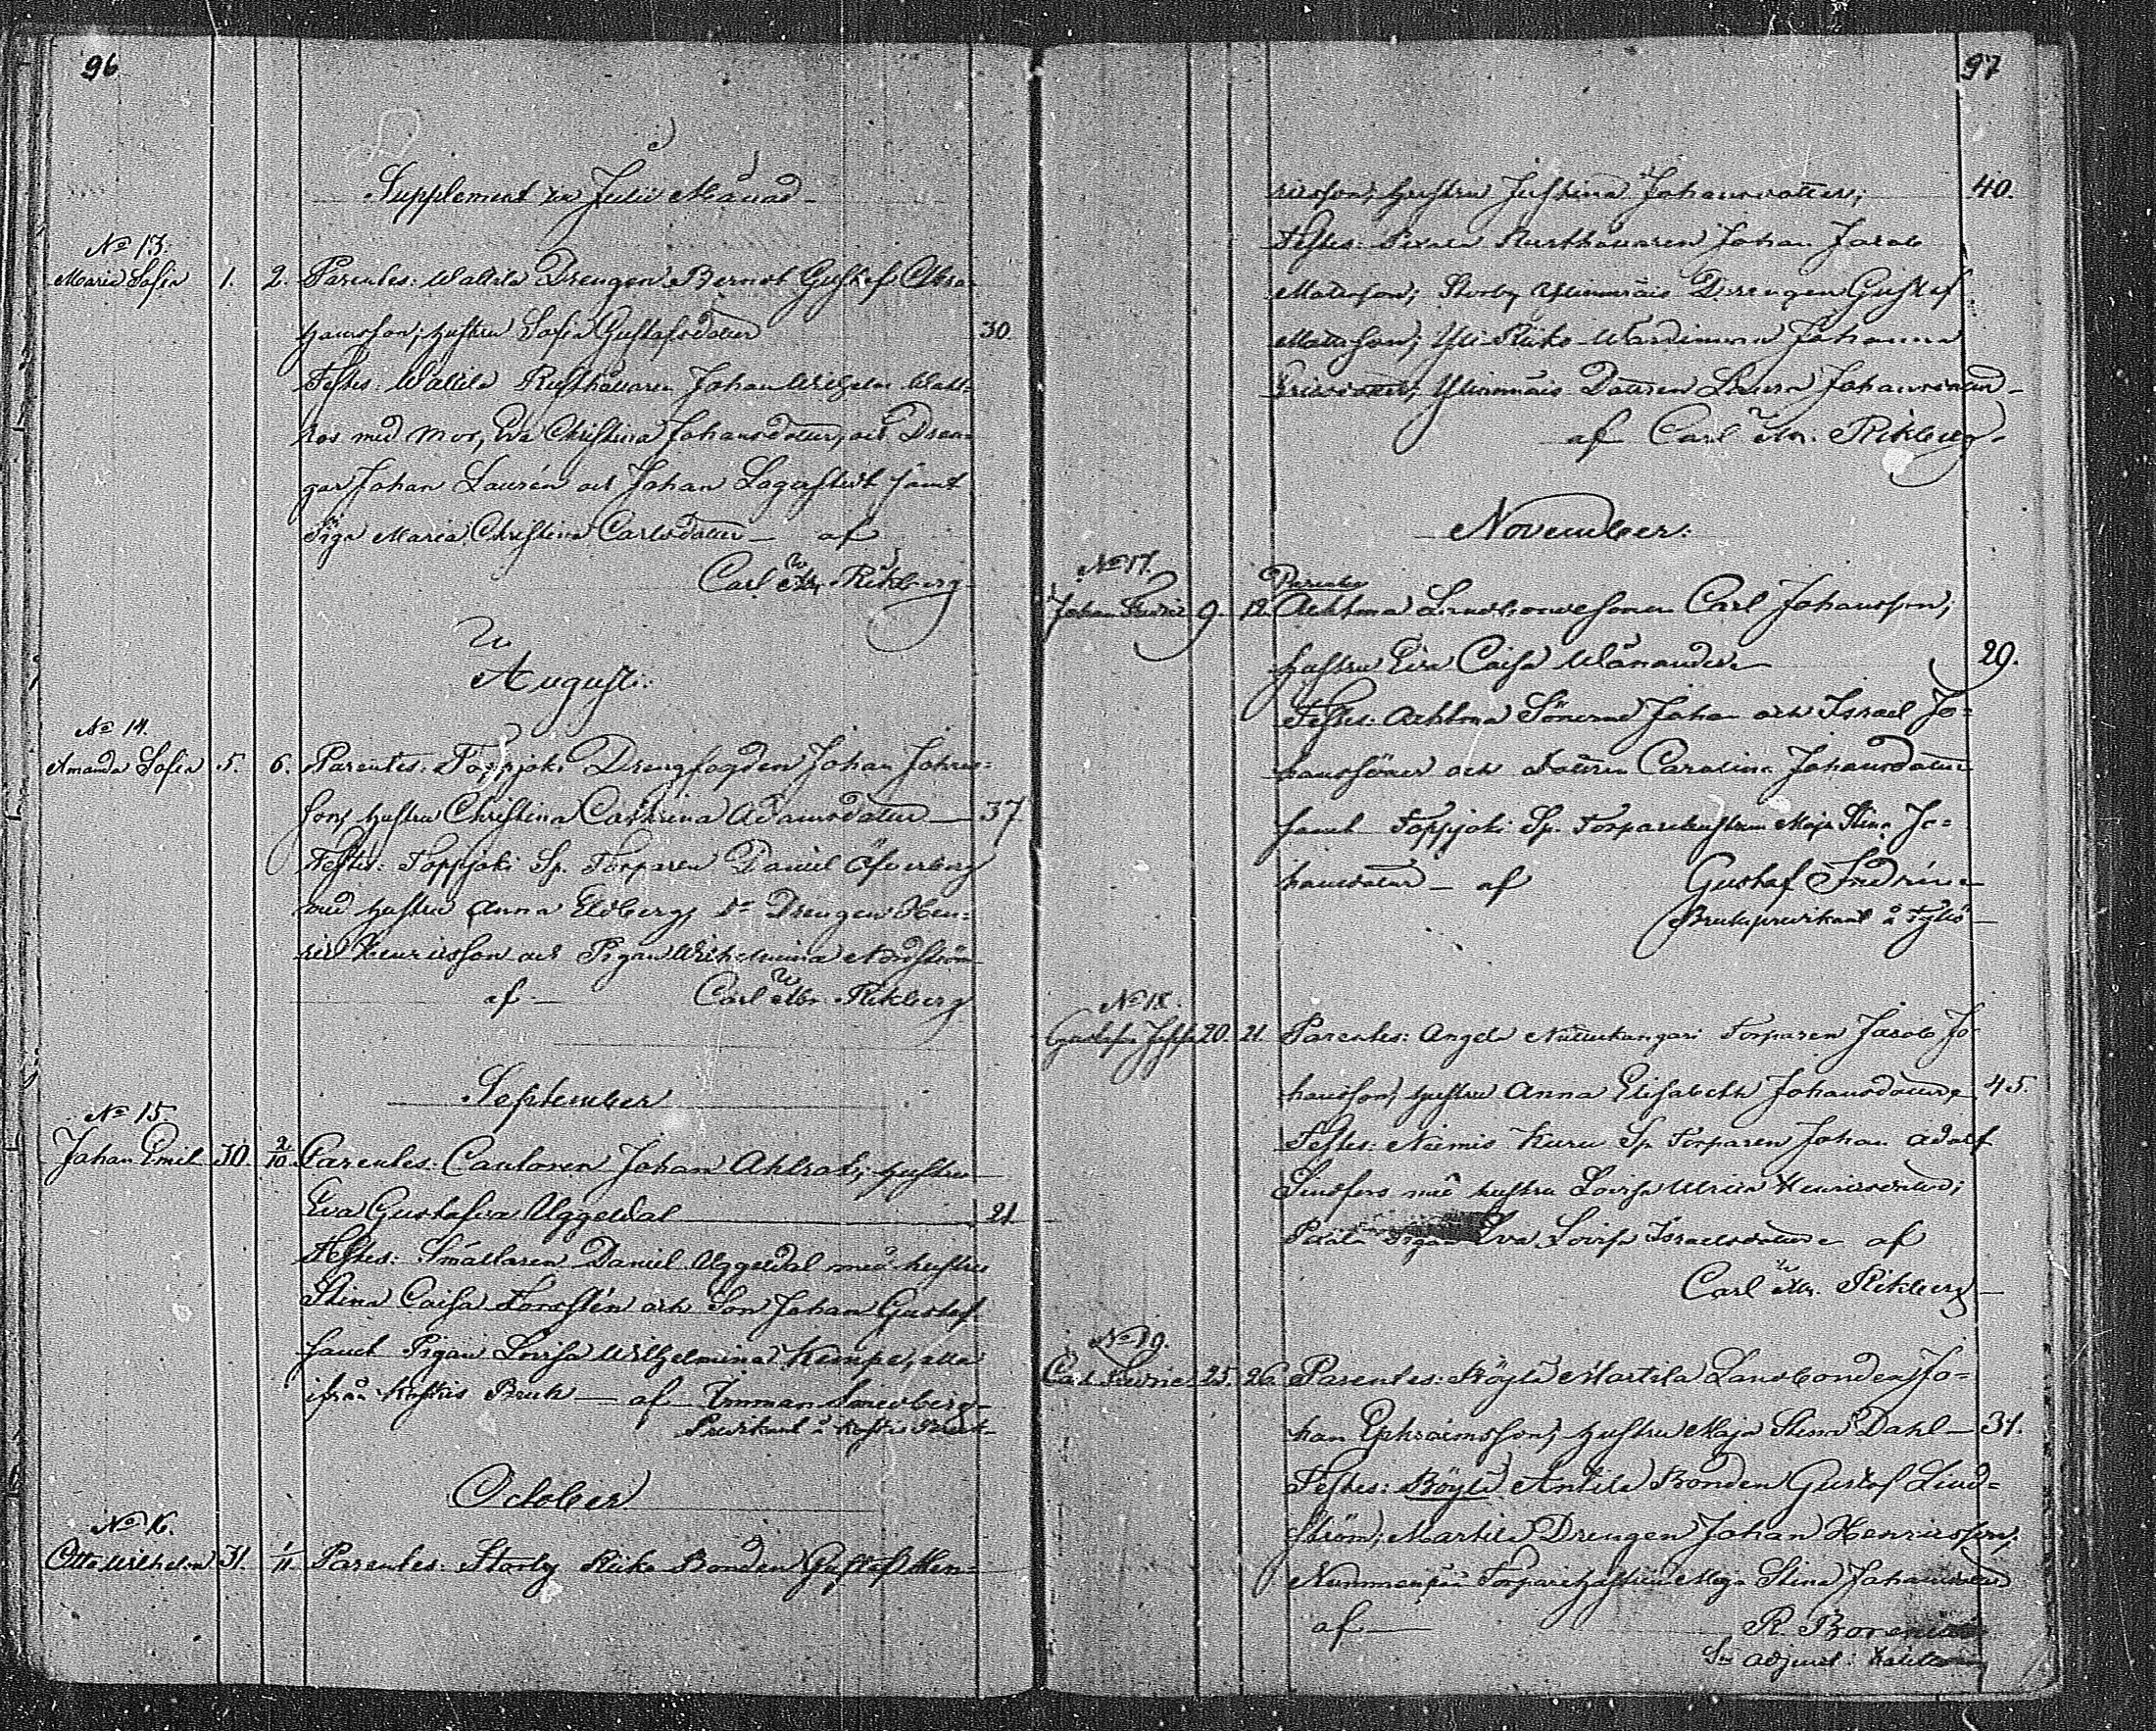 96
Supplement Julii Månad
No 13.
Maria Sofia 1. 2. Parentes: Wallila Drengen Berndt Gustaf Abra-
hamsson; hustru Sofia Gustafsdotter 30.
Testes: Wallila Rusthållaren Johan Wilhelm Wall-
ros med mor, Eva Christina Johansdotter, och Dren-
gar Johan Laurén och Johan Lagerstedt samt
Piga Maria Christina Carlsdotter – af
Carl Rikberg
Augusti:
No 14.
Amanda Sofia 5. 6. Parentes: Toppjoki Drengfogden Johan Johans-
son, hustru Christina Cathrina Adamsdotter 37
Testes: Toppjoki Sp. Torparen Daniel Öfverberg
med hustru Anna Eldberg, Drengen Hen-
ric Henricsson och Pigan Wilhelmina Nordström
af – Carl Rikberg
September
No 15
Johan Emil 30. 2/10. Parentes: Cantoren Johan Ahlrot; hustru
Eva Gustafva Uggeldal 21
Testes: Daniel Uggeldal med hustru
Stina Caisa Forsstén och Son Johan Gustaf
samt Pigan Lovisa Wilhelmina Kempe, alla
ifrån Koskis Bruk – af Emman Smedberg
Predikant å Koskis Bruk
October
No 16.
Otto Wilhelm 31. 1/11 Parentes: Storby Riiko Bonden Gustaf Hen-
97
ricsson; hustru Justina Johansdotter; 40.
Testes: Rusthållaren Johan Jacob
Matsson; Storby Ylinmäis Drengen Gustaf
Matsson; Yli-Riiko Wärdinnan Johanna
Ericsdotter; Ylinmäis Dottren Laura Johansdotter
af Carl Rikberg
November:
No 17.
Parentes
Johan Fredric 9. 12. Achtma Landbondesonen Carl Johansson;
hustru Eva Caisa Wänander 29.
Testes: Achtma Sönerne Johan och Israel Jo-
hanssöner och Dottren Carolina Johansdotter
samt Toppjoki Sp. Torparehustrun Maja Stina Jo-
hansdotter – af Gustaf Fredrén
Brukspredikant å Tykö
No 18.
Gustafva 20. 21. Parentes: Angela Torparen Jacob Jo-
hansson, hustru Anna Elisabeth Johansdotter 45.
Testes: Niemis Kuru Sp. Torparen Johan Adolf
Sindfors med hustru Lovisa Ulrica Henricsdotter;
Pigan Eva Lovisa Israelsdotter af
Carl Rikberg
No 19.
Carl Fredric 25. 26. Parentes: Röylä Martila Landbonden Jo-
han Ephraimsson, hustru Maja Stina Dahl – 31.
Testes: Röylä Antila Bonden Gustaf Lind-
ström; Martila Drengen Johan Henricsson,
Nummenpää Torparehustrun Maja Stina Johansdotter
af – R. Borenius
Adjunct